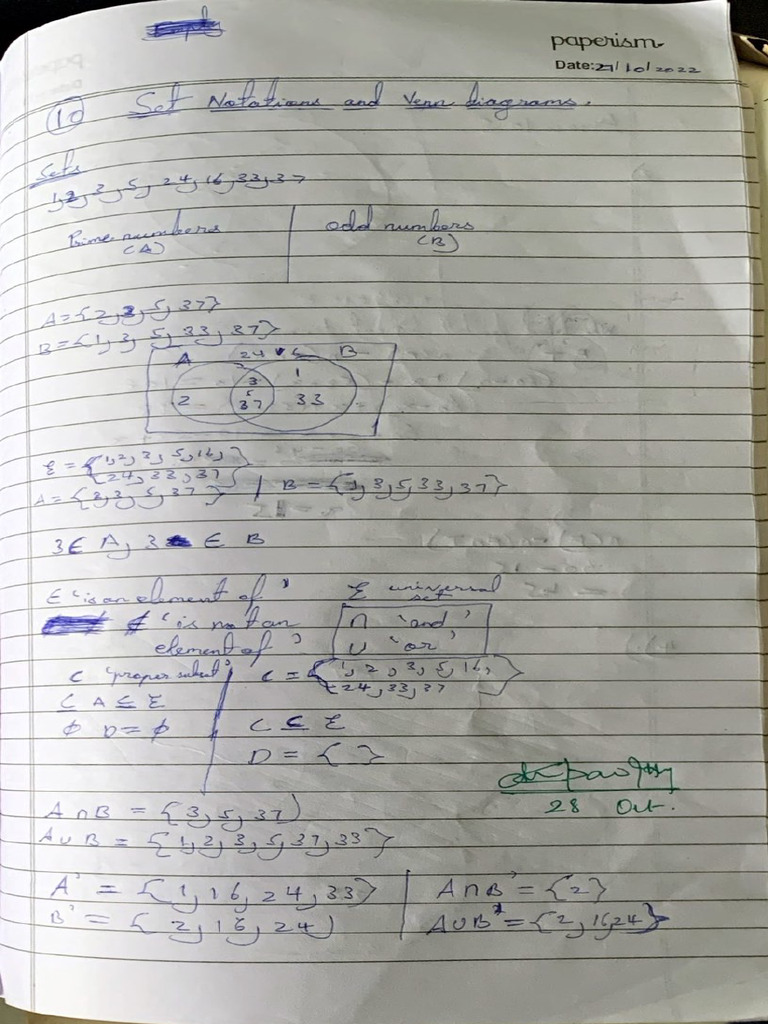 paperism
Date:27/10/2022
10 Set Notations and Venn diagrams.
Sets
1,2,3,5,24,16,33,37
Prime numbers
(A)
odd numbers
(B)
A={2,3,5,37}
B={1,3,5,33,37}
A 24 16 B
3 1
2 5 33
37
ξ = {1,2,3,5,16,
24,33,37}
A={2,3,5,37} | B={1,3,5,33,37}
3∈ A, 3 ∈ B
∈ 'is an element of' ξ universal set
∉ 'is not an ∩ 'and'
element of' ∪ 'or'
⊂ 'proper subset' C = {1,2,3,5,16,
24,33,37}
⊆ A ⊆ ξ
φ D=φ C ⊆ ξ
D = { }
28 Oct.
A∩B = {3,5,37}
A∪B = {1,2,3,5,37,33}
A' = {1,16,24,33} | A∩B' = {2}
B' = {2,16,24} A∪B' = {2,16,24}